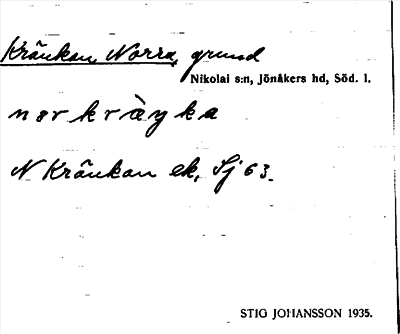 Kränkan, Norra, grund
Nikolai s:n, Jönåkers hd, Söd. l.
N Kränkan ek, Sj 63
STIG JOHANSSON 1935.